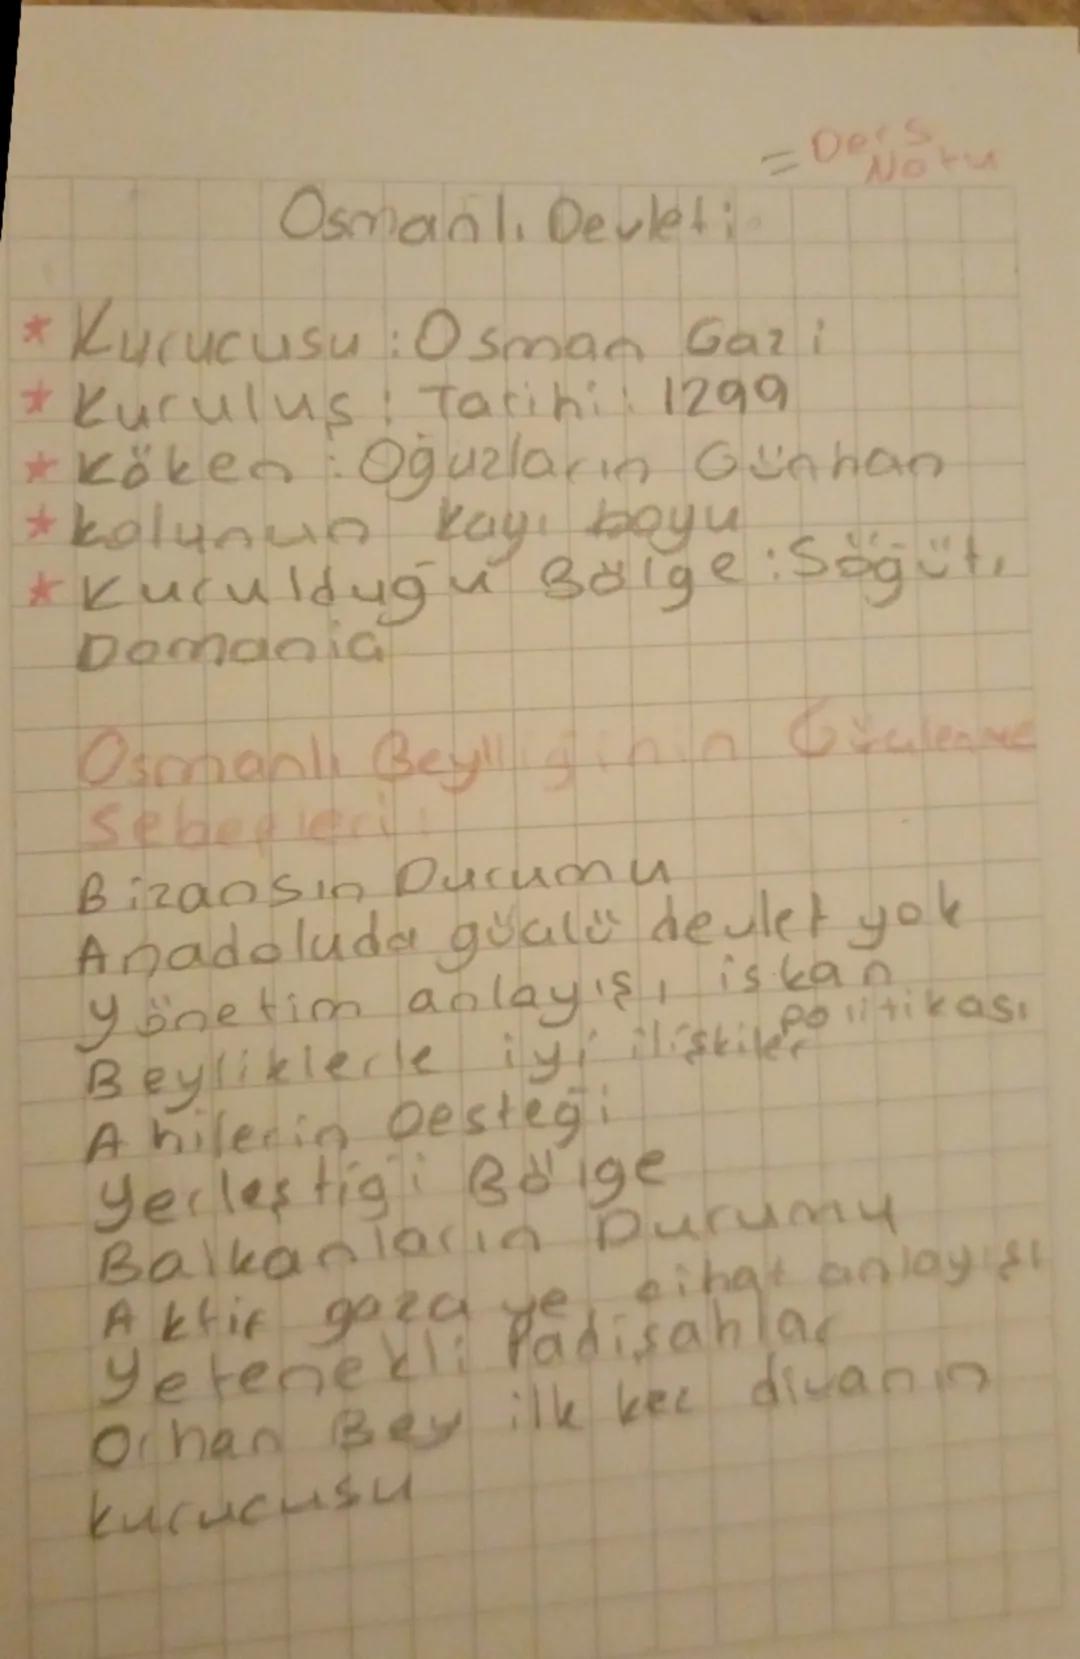 = Ders
Notu
Osmanlı Devleti
* Kurucusu : Osman Gazi
* Kuruluş : Tarihi : 1299
* Köken : Oğuzların Günhan
* kolunun kayı boyu
* Kurulduğu Bölge : Söğüt,
Domaniç
Osmanlı Beyliğinin Güçlenme
Sebepleri :
Bizansın Durumu
Anadoluda güçlü devlet yok
yönetim anlayışı, iskan
politikası
Beyliklerle iyi ilişkiler
Ahilerin Desteği
yerleştiği Bölge
Balkanların Durumu
Aktif gaza ve cihat anlayışı
yetenekli Padişahlar
Orhan Bey ilk kez divanın
kurucusu